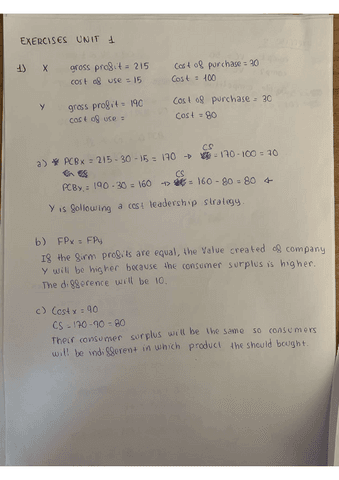 EXERCISES UNIT 1
1) X gross profit = 215 Cost of purchase = 30
cost of use = 15 Cost = 100
Y gross profit = 190 Cost of purchase = 30
cost of use = Cost = 80
a) PCBx = 215 - 30 - 15 = 170 → CS = 170 - 100 = 70
PCBx, = 190 - 30 = 160 → CS = 160 - 80 = 80 ←
Y is following a cost leadership strategy.
b) FPx = FPy
If the firm profits are equal, the value created of company
Y will be higher because the consumer surplus is higher.
The difference will be 10.
c) Costx = 90
CS = 170 - 90 = 80
Their consumer surplus will be the same so consumers
will be indifferent in which product the should bought.